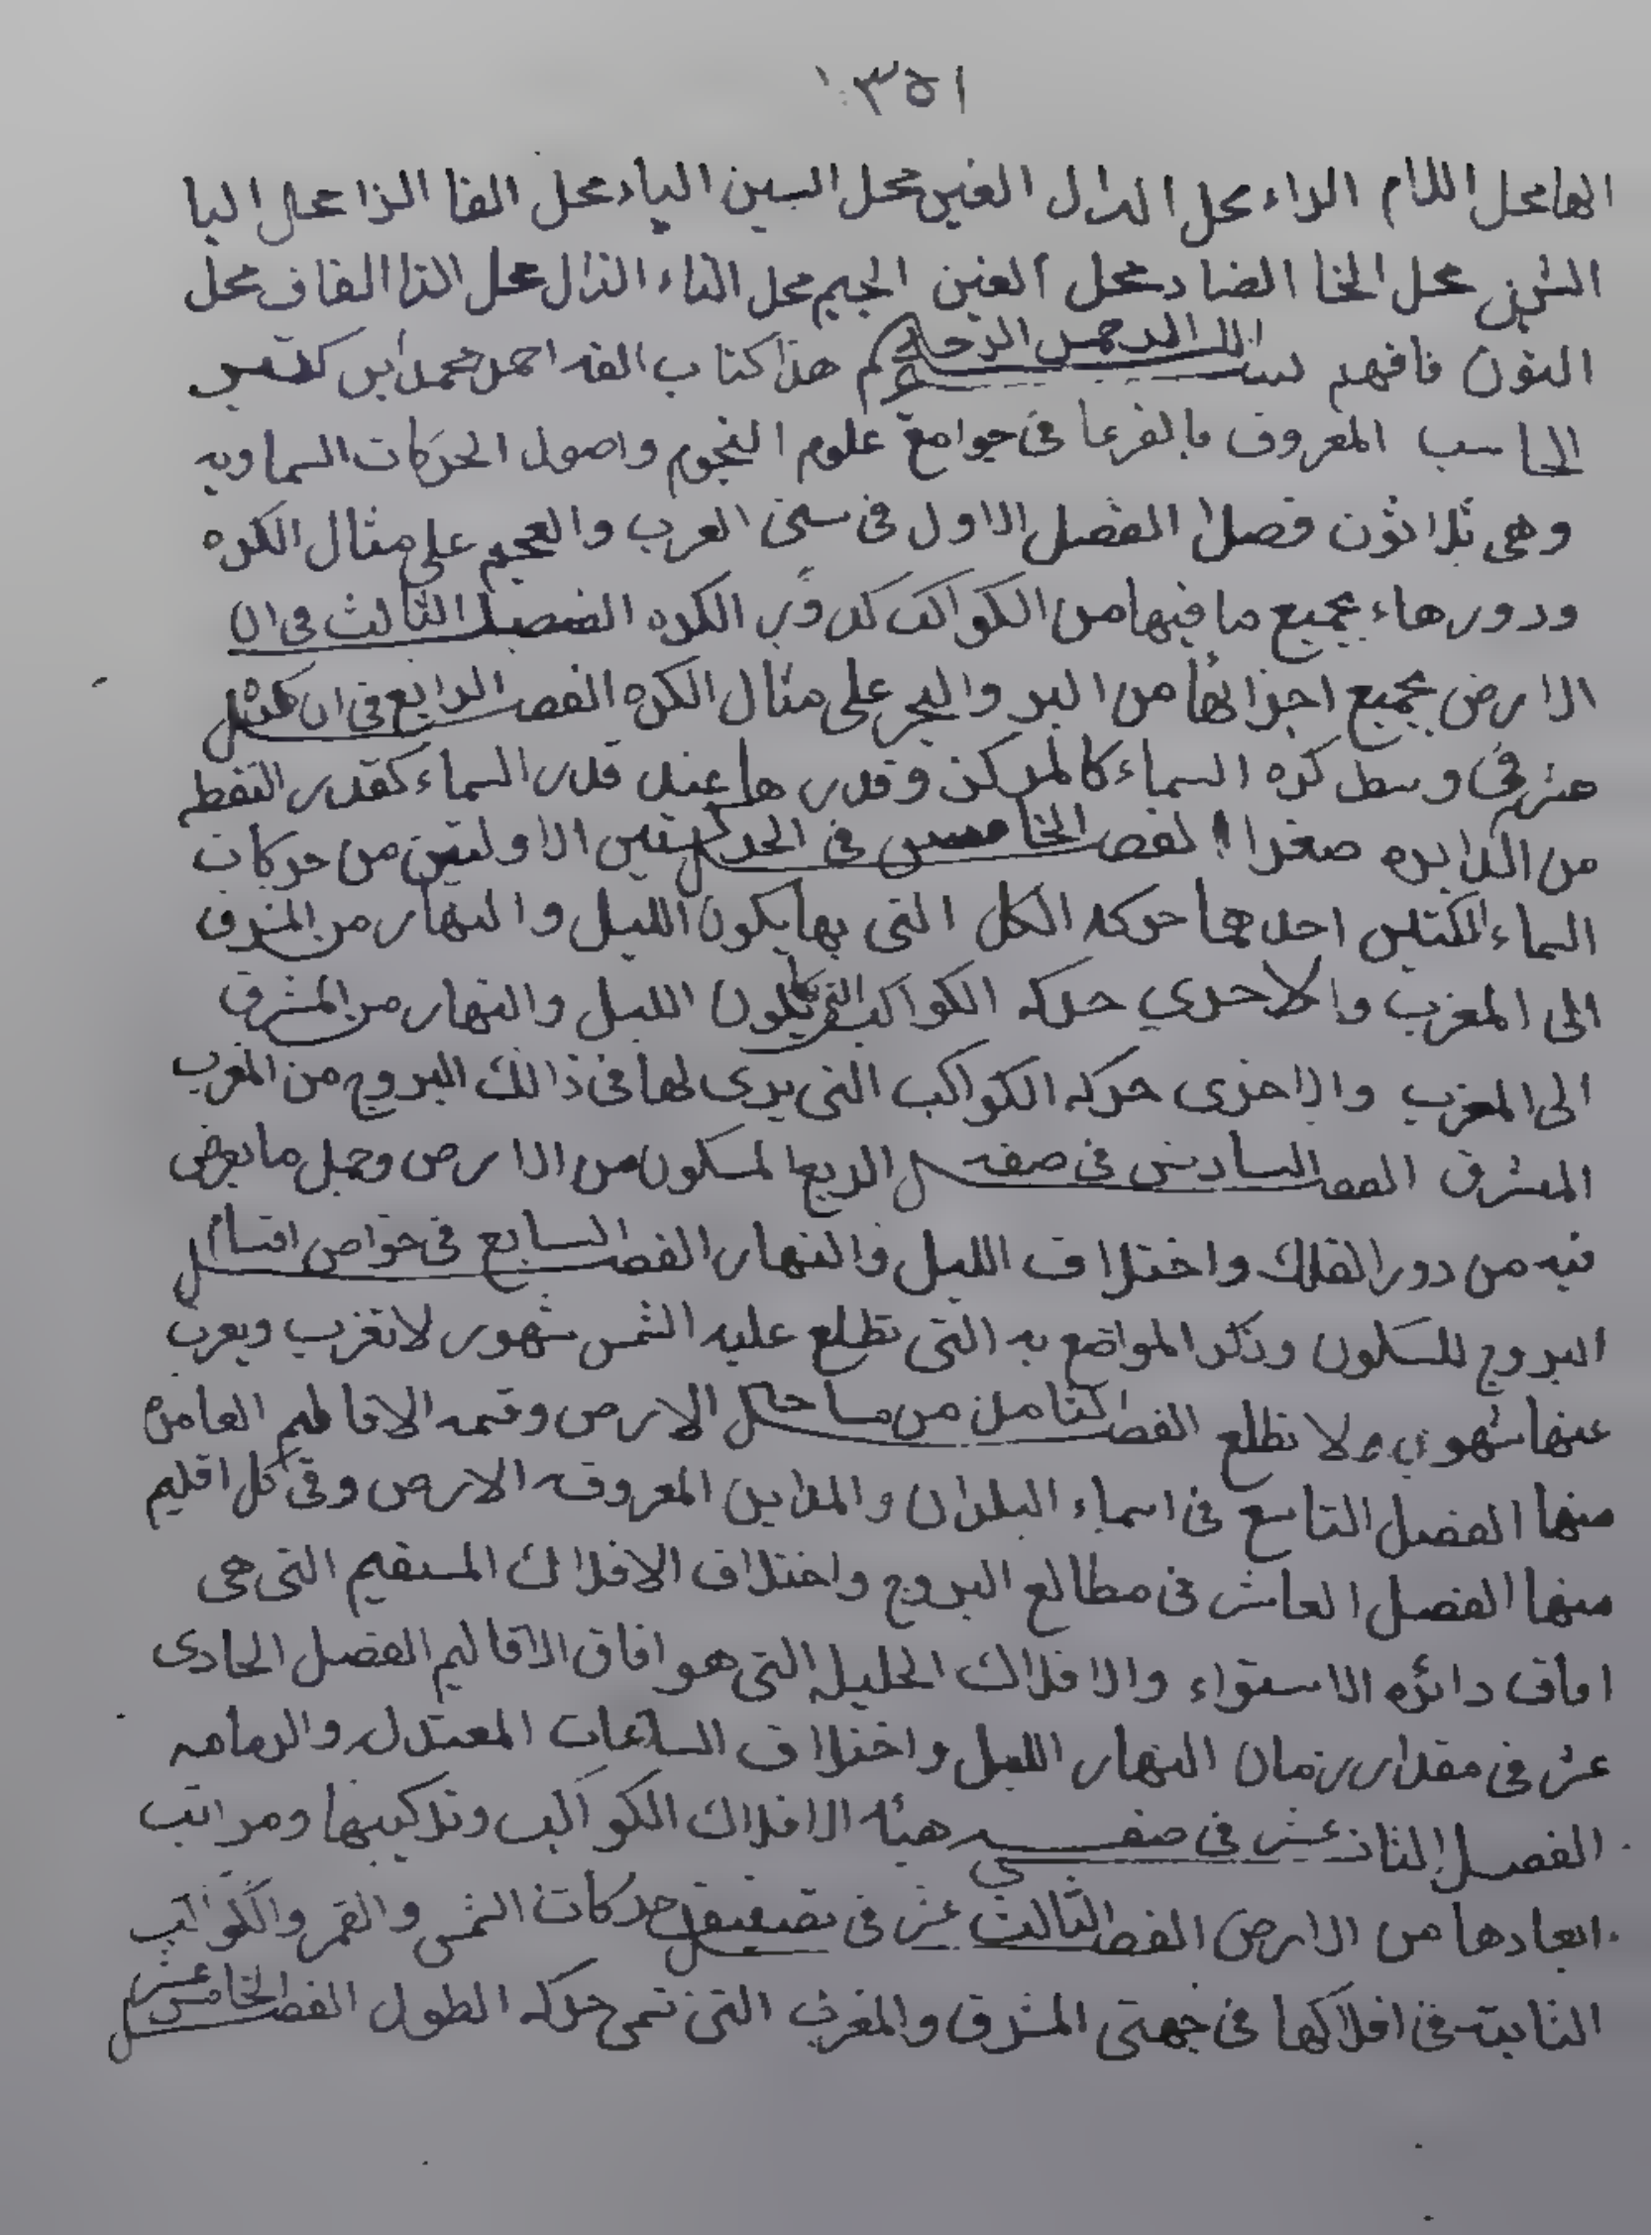 ١٣٥١
الها محل اللام الراء محل الدال الغين محل السين الياء محل الفا الزا محل البا
الشين محل الخا الضاد محل العين الجيم محل الثاء الذال محل التا القاف محل
النون فافهم بسم الله الرحمن الرحيم هذا كتاب الفه احمد محمد ابن كثير
الحاسب المعروف بالفرعا فى جوامع علوم النجوم واصول الحركات السماويه
وهى ثلاثون فصلا الفصل الاول فى سنى العرب والعجم على مثال الكره
ودورهاء بجميع ما فيها من الكواكب كدور الكره الفصل الثالث فى ان
الارض بجميع اجزائها من البر والبحر على مثال الكره الفصل الرابع فى ان كره
فى وسط كره السماء كالمركز وقدرها عند قدر السماء كقدر النقطه
من الدايره صغرا الفصل الخامس فى الحركتين الاولتين من حركات
السماء احدهما حركه الكل التى بها يكون الليل والنهار من المشرق
الى المغرب والاخرى حركه الكواكب التى بها يكون الليل والنهار من المشرق
الى المغرب والاخرى حركه الكواكب التى يرى لها فى ذالك البروج من المغرب
المشرق الفصل السادس فى صفه الربع المسكون من الارض وجمل ما يعرض
فيه من دور الفلك واختلاف الليل والنهار الفصل السابع فى خواص اقسام
البروج المسكون وذكر المواضع به التى تطلع عليه الشمس شهور لا تغرب ويغرب
عنها شهور ولا تطلع الفصل الثامن من مساحه الارض وقسمه الاقاليم العامره
منها الفصل التاسع فى اسماء البلدان والمداين المعروفه الارض وفى كل اقليم
منها الفصل العاشر فى مطالع البروج واختلاف الافلاك المستقيم التى هى
افاق دائره الاستواء والافلاك الحليله التى هو افاق الاقاليم الفصل الحادى
عشر فى مقدار زمان النهار الليل واختلاف الساعات المعتدل والرمامه
الفصل الثانى عشر فى صفه هيئه الافلاك الكواكب وتركيبها ومراتب
ابعادها من الارض الفصل الثالث عشر فى تصنيف حركات الشمس والقمر والكواكب
الثابتة فى افلاكها فى جهتى المشرق والمغرب التى تسمى حركه الطول الفصل الخامس عشر